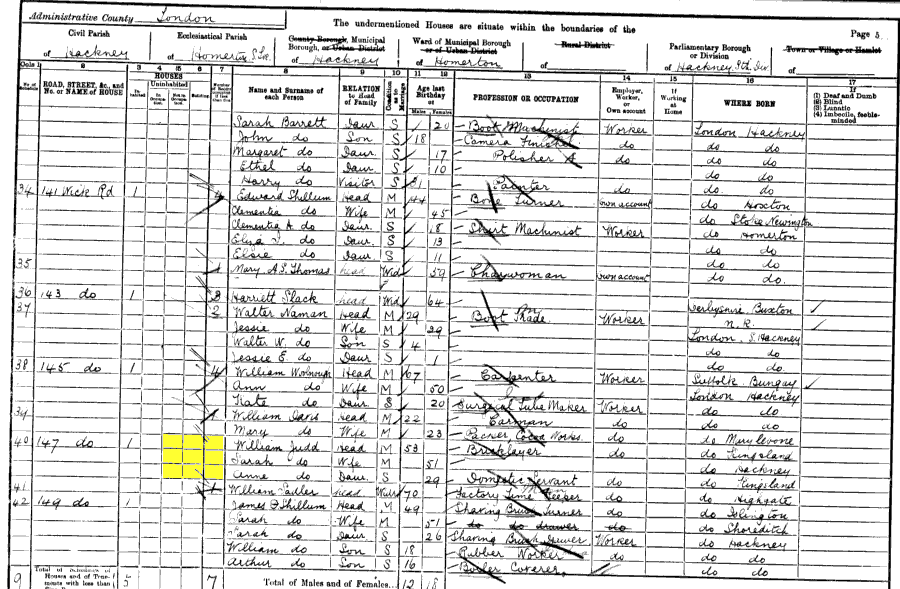 Administrative County London
The undermentioned Houses are situate within the boundaries of the
Page 5
Civil Parish
of Hackney
Ecclesiastical Parish
of Homerton S. Lke
County Borough, Municipal
Borough, or Urban District
of Hackney
Ward of Municipal Borough
or of Urban District
of Homerton
Rural District
of
Parliamentary Borough
or Division
of Hackney Sth Div.
Town or Village or Hamlet
of
Cols 1 2 3 4 5 6 7 8 9 10 11 12 13 14 15 16 17
ROAD, STREET, &c., and No. or NAME of HOUSE
HOUSES
Uninhabited
Building
Name and Surname of each Person
RELATION to Head of Family
Condition as to Marriage
Age last Birthday of
Males Females
PROFESSION OR OCCUPATION
Employer, Worker, or Own account
If Working at Home
WHERE BORN
If
(1) Deaf and Dumb
(2) Blind
(3) Lunatic
(4) Imbecile, feeble-minded
Sarah Barrett Daur S 20 Boot Machinist Worker London Hackney
John do Son S 18 Camera Finisher do do do
Margaret do Daur. S 17 Polisher do do do
Ethel do Daur. S 10 do do
Harry do Visitor S 31 Painter do do do
34 141 Wick Rd 1 4 Edward Shillum Head M 44 Bone Turner own account do Hoxton
Clementia do Wife M 45 do Stoke Newington
Clementia A. do Daur. S 18 Shirt Machinist Worker do Homerton
Eliza do Daur. S 13 do do
Elsie do Daur S 11 do do
35 1 Mary A.S. Thomas head Wid 59 Charwoman own account do do
36 143 do 1 3 Harriett Slack head Wid 64 Derbyshire, Buxton
37 2 Walter Naman Head M 29 Boot Trade Worker N.K.
Jessie do Wife M 29 London, S. Hackney
Walter W. do Son S 4 do do
Jessie E. do Daur S 1 do do
38 145 do 1 4 William Head M 67 Carpenter Worker Suffolk Bungay
Ann do Wife M 50 London Hackney
Kate do Daur. S 20 Surgical Tube Maker Worker do do
39 1 William Davis Head M 22 Carman do do do
Mary do Wife M 23 Packer Cocoa Works. do do Marylevone
40 147 do 1 William Judd Head M 53 Bricklayer do do Kingsland
Sarah do Wife M 51 do Hackney
Anne do Daur. S 29 Domestic Servant do do Kingsland
41 1 William Sadler head Widr 70 Factory Time Keeper do do Highgate
42 149 do 1 James Shillum Head M 49 Shaving Brush Turner do do Islington
Sarah do Wife M 51 do do drawer do do Shoreditch
Sarah do Daur S 26 Shaving Brush Drawer Worker do Hackney
William do Son S 18 Rubber Worker do do do
Arthur do Son S 16 Boiler Coverer do do
9 Total of Schedules of Houses and of Tenements with less than 5 7 Total of Males and of Females... 12 18